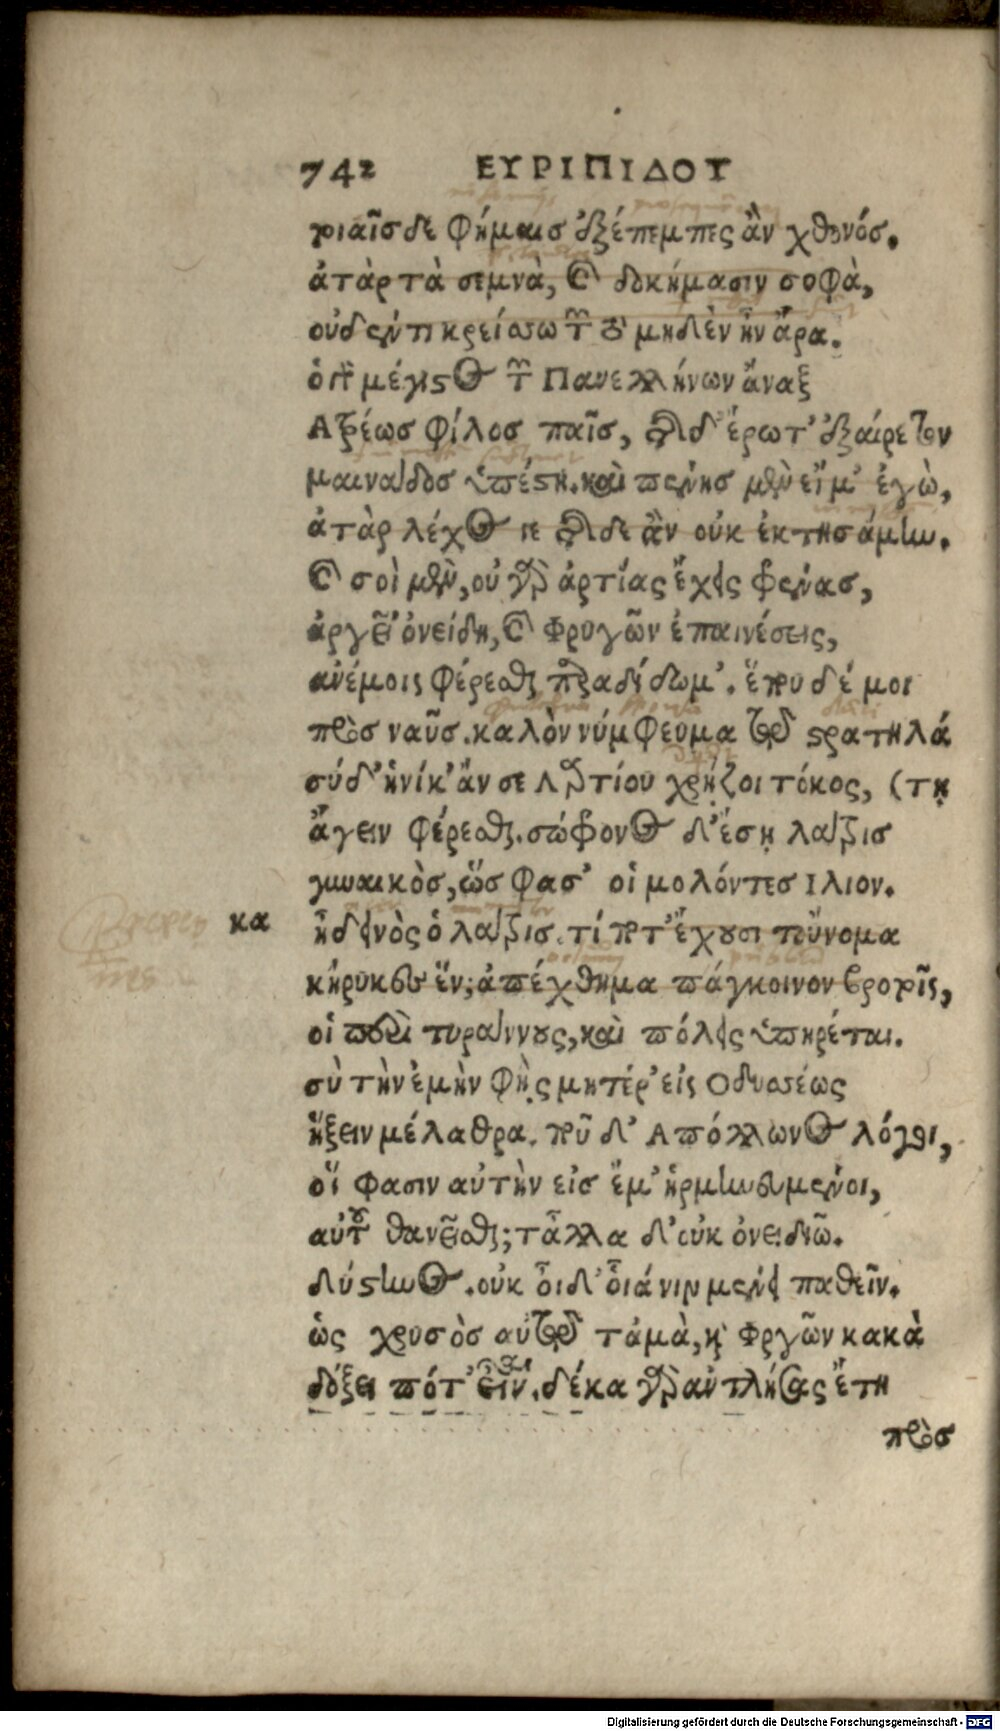 742 ΕΥΡΙΠΙΔΟΥ
ριαῖσδε φήμαισ ἐξέπεμπες ἂν χθονός.
ἀτὰρ τὰ σεμνὰ, καὶ δοκήμασιν σοφὰ,
οὐδέν τι κρείσσω τῶν τοῦ μηδὲν ἦν ἄρα.
ὁ γὰρ μέγιστος τῶν Πανελλήνων ἄναξ
Ατρέως φίλοσ παῖσ, τῆσδ' ἔρωτ' ἐξαίρετον
μαινάδοσ ὑπέστη. καὶ πένησ μὲν εἴμ' ἐγὼ,
ἀτὰρ λέχος γε τῆσδε ἂν οὐκ ἐκτησάμην.
καὶ σοὶ μὲν, οὐ γὰρ ἀρτίας ἔχεις φρένασ,
ἀργεῖ' ὀνείδη, καὶ Φρυγῶν ἐπαινέσεις,
ἀνέμοις φέρεσθαι παραδίδωμ'. ἕπου δέ μοι
πρὸσ ναῦσ. καλὸν νύμφευμα τῷ στρατηλά
σύ δ' ἡνίκ' ἄν σε Λαρτίου χρῄζοι τόκος, (τῃ
ἄγειν φέρεσθαι. σώφρονος δ' ἔσῃ λάτρισ
γυναικὸσ, ὥσ φασ' οἱ μολόντεσ Ιλιον.
κα ἦ δεινὸς ὁ λάτρισ. τί ποτ' ἔχουσι τοὔνομα
κήρυκες ἕν; ἀπέχθημα πάγκοινον βροτοῖς,
οἱ περὶ τυράννους, καὶ πόλεις ὑπηρέται.
σὺ τὴν ἐμὴν φῂς μητέρ' εἰς Οδυσσέως
ἥξειν μέλαθρα. ποῦ δ' Απόλλωνος λόγοι,
οἵ φασιν αὐτὴν εἰσ ἔμ' ἡρμηνευμένοι,
αὐτοῦ θανεῖσθαι; τἆλλα δ' οὐκ ὀνειδιῶ.
δύστηνος. οὐκ οἶδ' οἷά νιν μένει παθεῖν.
ὡς χρυσὸσ αὐτῷ τἀμὰ, καὶ Φργῶν κακὰ
δόξει πότ' εἶναι. δέκα γὰρ ἀντλήσας ἔτη
πρὸσ
Digitalisierung gefördert durch die Deutsche Forschungsgemeinschaft - DFG